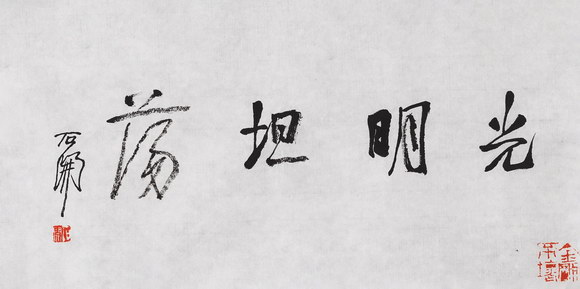 光明坦荡
石開